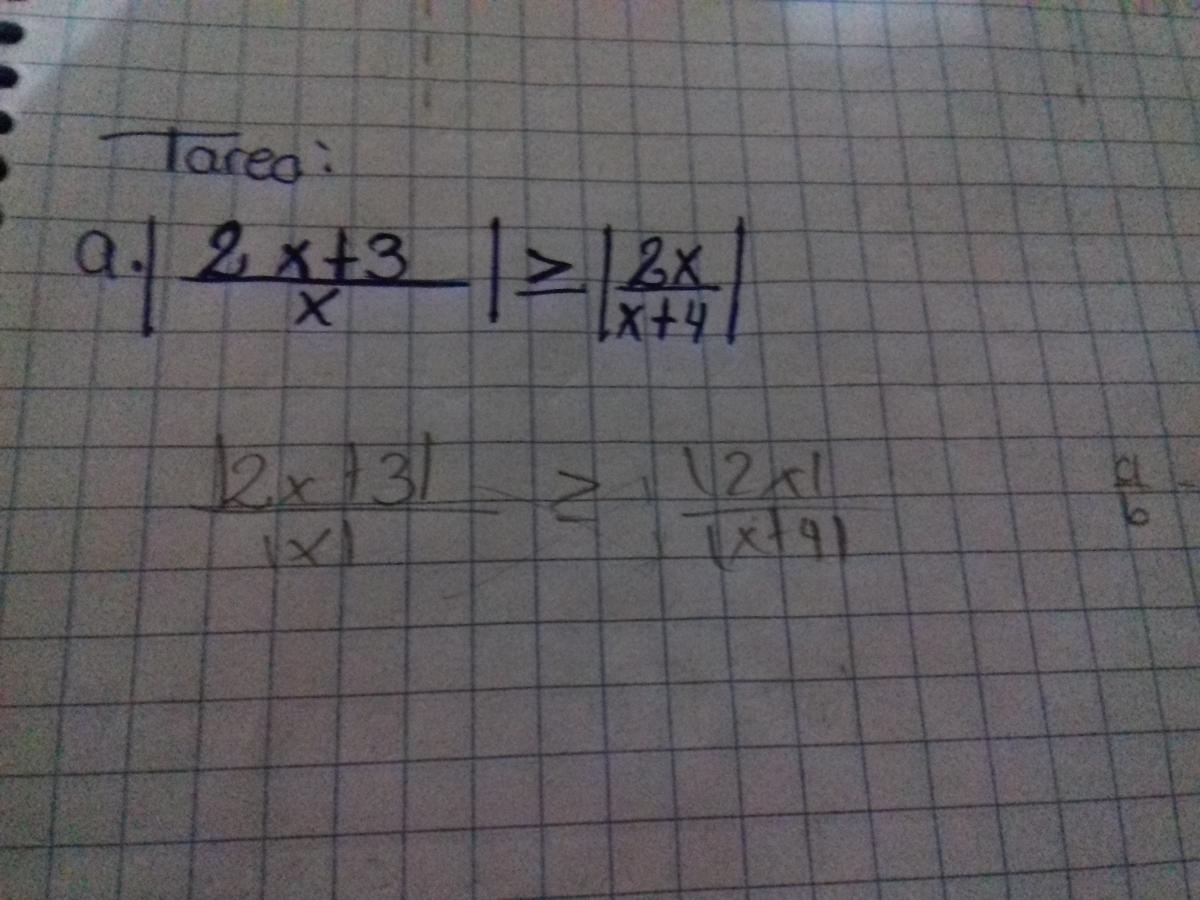 Tarea:
a. |2x+3 / x| ≥ |2x / x+4|
|2x+3| / |x| ≥ |2x| / |x+4|
a / b